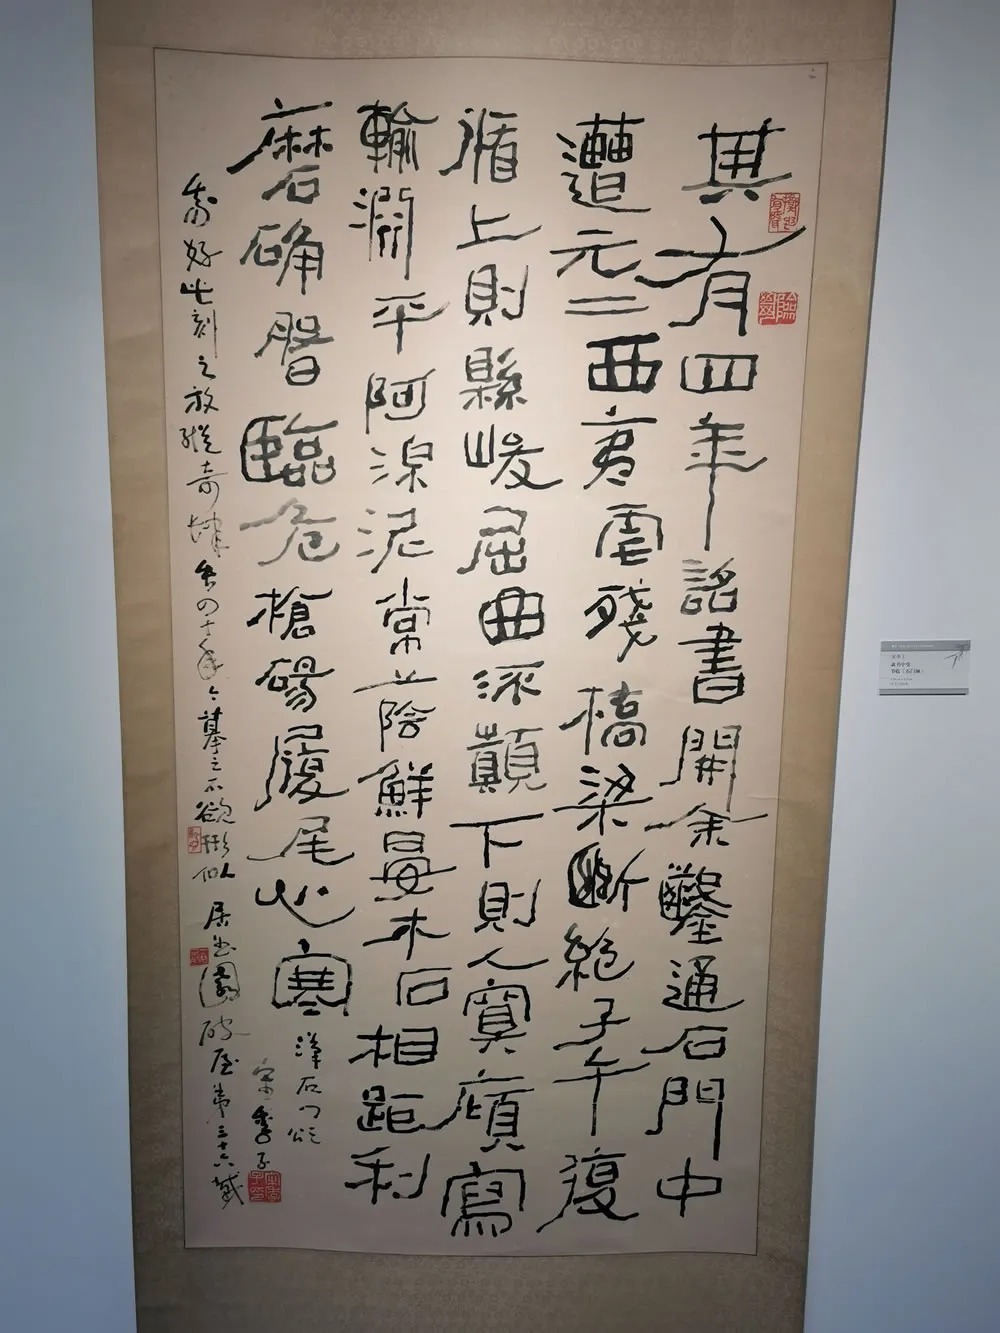 其有四年詔書開余鑿通石門中
遭元二西夷虐殘橋梁斷絶子午復
循上則縣峻屈曲流顛下則入冥廎寫
輸淵平阿湶泥常蔭鮮晏木石相距利
磨确磐臨危槍碭履尾心寒
漢石門頌
宋季子
好此刻之放縱奇肆 四十年 摹之不欲形似 居 園破屋第三十六歲
隶书中堂
节临《石门颂》